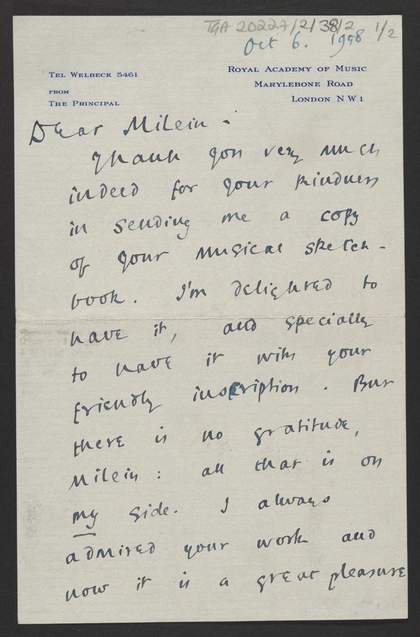 TGA 20227/2/38/2 1/2
Oct 6. 1958
TEL WELBECK 5461
FROM
THE PRINCIPAL
ROYAL ACADEMY OF MUSIC
MARYLEBONE ROAD
LONDON N W 1
Dear Milein:
Thank you very much
indeed for your kindness
in sending me a copy
of your musical sketch-
book. I'm delighted to
have it, and specially
to have it with your
friendly inscription. But
there is no gratitude,
Milein: all that is on
my side. I always
admired your work and
now it is a great pleasure